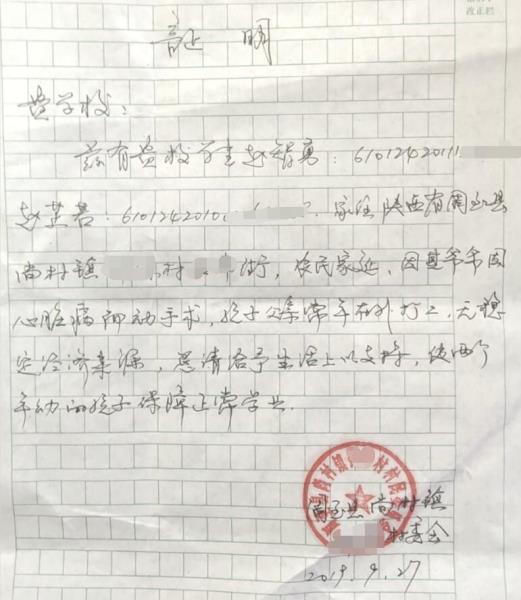 改正栏
証 明
贵学校：
兹有贵校学生赵智勇：6101242011
赵芷若：6101242010 家住陕西省周至县
尚村镇 村 街，农民家延，因其爷爷因
心脏病 动手术，孩子父亲常年在外打工，无稳
定经济来源，恳请给予生活上以支持，使两个
年幼的孩子保障正常学业.
周至县尚村镇 村村民委员会
周至县尚村镇
村委会
2019.9.27